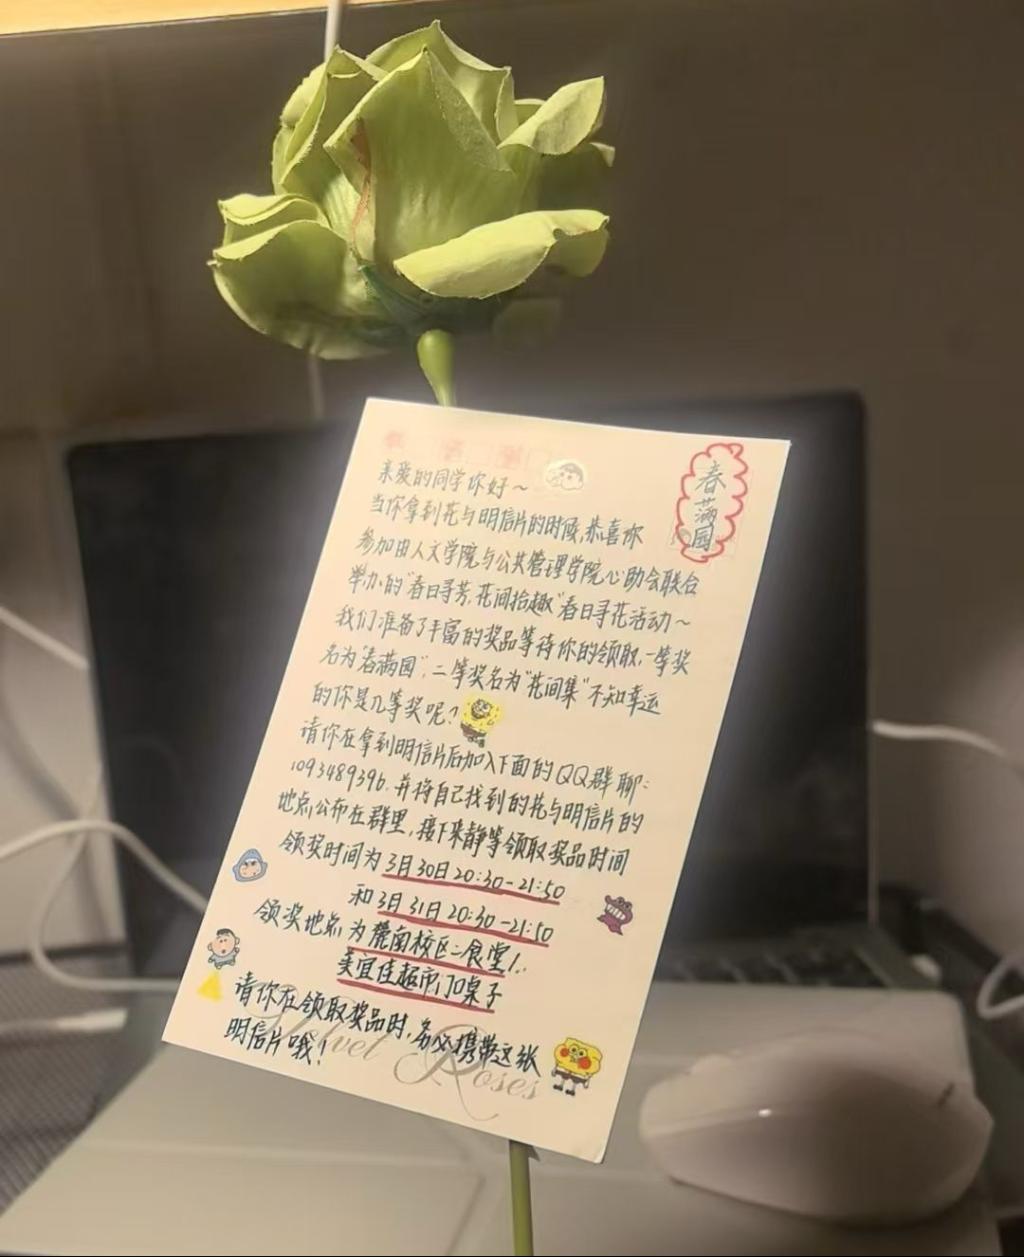 春满园
亲爱的同学你好~
当你拿到花与明信片的时候,恭喜你
参加由人文学院与公共管理学院心助会联合
举办的"春日寻芳,花间拾趣"春日寻花活动~
我们准备了丰富的奖品等待你的领取,一等奖
名为"春满园",二等奖名为"花间集"不知幸运
的你是几等奖呢?
请你在拿到明信片后加入下面的QQ群聊:
1093489396,并将自己找到的花与明信片的
地点公布在群里,接下来静等领取奖品时间
领奖时间为3月30日20:30-21:50
和3月31日20:30-21:50
领奖地点为麓南校区二食堂/
美宜佳超市门口桌子
请你在领取奖品时,务必携带这张
明信片哦!
Velvet Roses